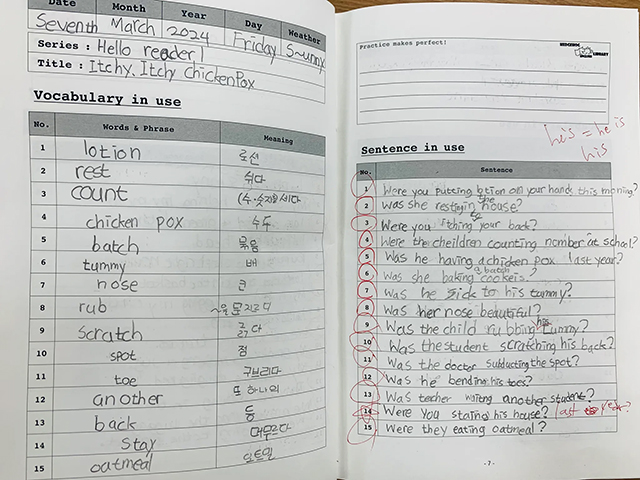 Date Month Year Day Weather
Seventh March 2024 Friday Sunny
Series : Hello reader 1
Title : Itchy, Itchy chicken Pox
Vocabulary in use
No. Words & Phrase Meaning
1 lotion 로션
2 rest 쉬다
3 count (수·숫자)세다
4 chicken pox 수두
5 batch 묶음
6 tummy 배
7 nose 코
8 rub
9 scratch 긁다
10 spot 점
11 toe 구부리다
12 another 또 하나의
13 back 등
14 stay 머무르다
15 oatmeal 오트밀
Practice makes perfect!
LIBRARY
he's = he is
his
Sentence in use
No. Sentence
1 Were you putting lotion on your hands this morning?
2 Was she resting in she house?
3 Were you itching your back?
4 Were the cheildren counting nomber at school?
5 Was he having a chicken pox last year?
6 Was she baking a batch cookeis?
7 Was he sick to his tummy?
8 Was her nose beautiful?
9 Was the child rubbing his tummy?
10 Was the student scratching his back?
11 Was the doctor the spot?
12 Was he bending his toes?
13 Was teacher another student?
14 Were you his house? last
15 Were they eating oatmeal?
-7-